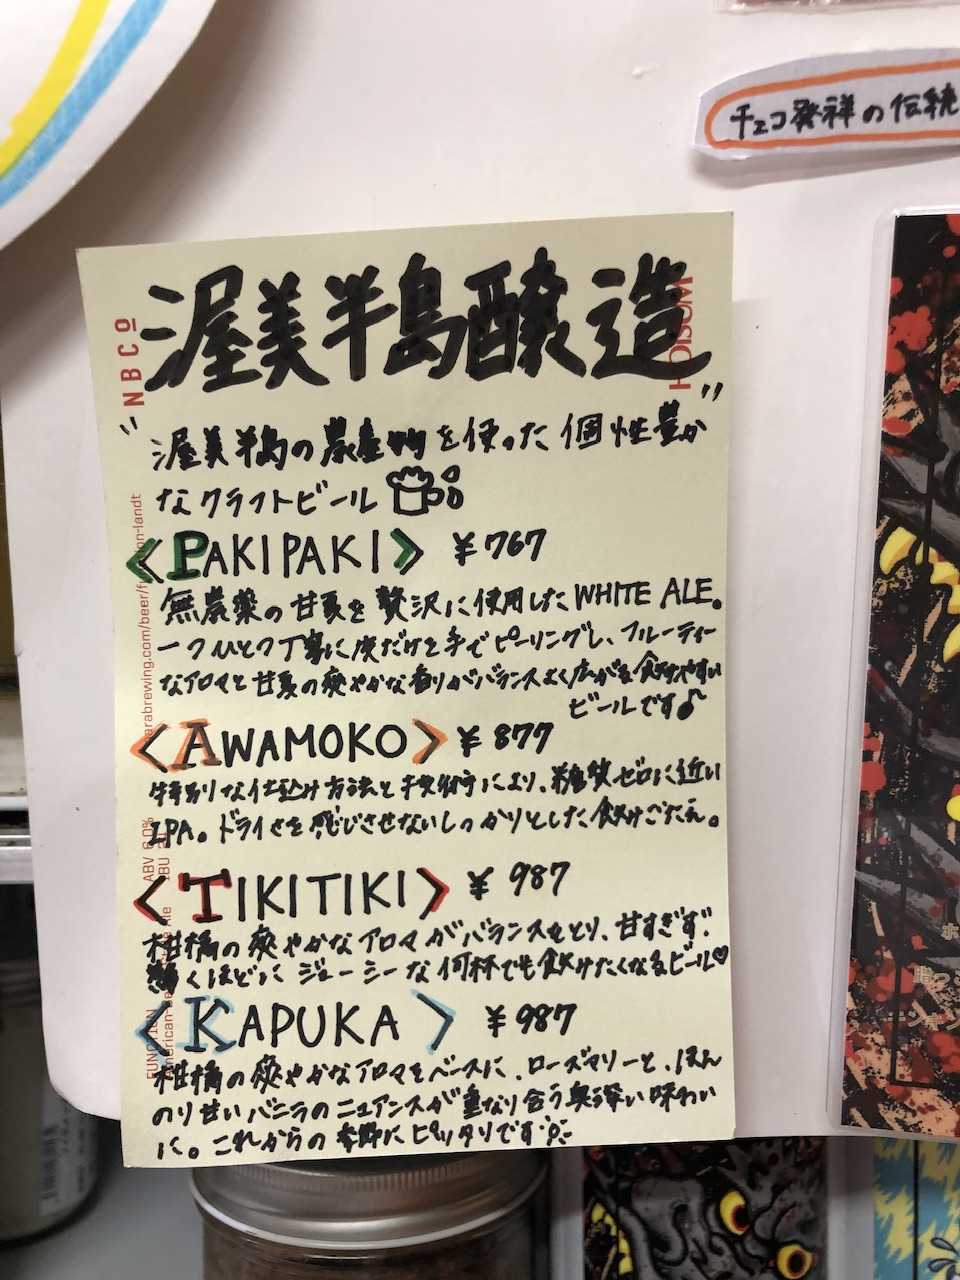 チェコ発祥の伝統
渥美半島醸造
NBCO
HOISUM
"渥美半島の農産物を使った個性豊か"
なクラフトビール
<PAKIPAKI> ¥767
無農薬の甘夏を贅沢に使用したWHITE ALE。
一つひとつ丁寧に皮だけを手でピーリングし、フルーティー
なアロマと甘夏の爽やかな香りがバランスよく広がる飲みやすい
ビールです♪
<AWAMOKO> ¥877
特別な仕込み方法と技術により、糖質ゼロに近い
IPA。ドライさを感じさせないしっかりとした飲みごたえ。
<TIKITIKI> ¥987
柑橘の爽やかなアロマがバランスをとり、甘すぎず
驚くほどにジューシーな何杯でも飲みたくなるビール♡
<KAPUKA> ¥987
柑橘の爽やかなアロマをベースに、ローズマリーと、ほん
のり甘いバニラのニュアンスが重なり合う奥深い味わい
に。これからの季節にピッタリです
arabrewing.com/beer/f
n-landt
ABV 6.0%
IBU
FUNCTION
American-be